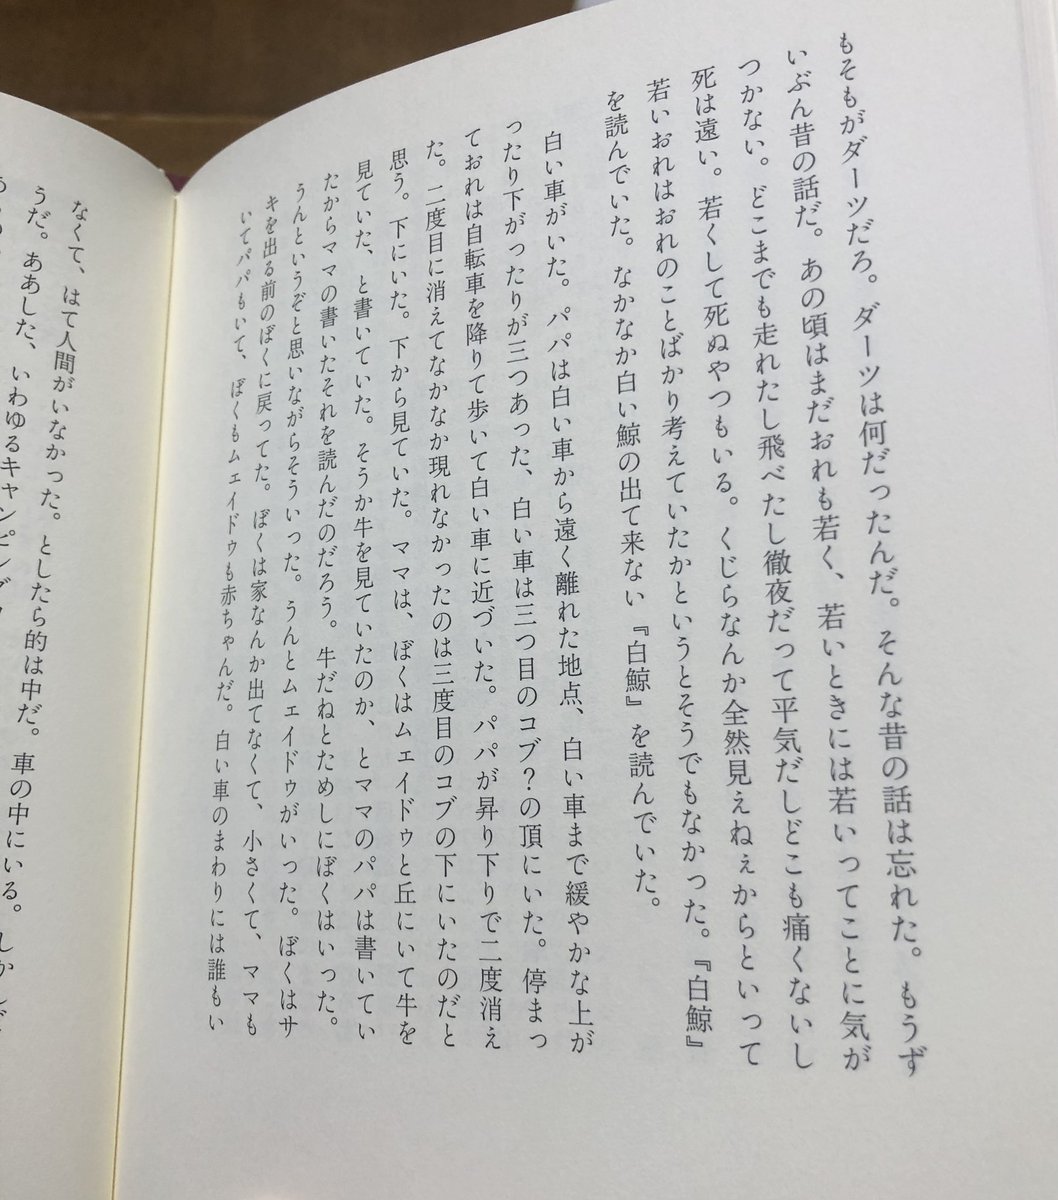 もそもがダーツだろ。ダーツは何だったんだ。そんな昔の話は忘れた。もうず
いぶん昔の話だ。あの頃はまだおれも若く、若いときには若いってことに気が
つかない。どこまでも走れたし飛べたし徹夜だって平気だしどこも痛くないし
死は遠い。若くして死ぬやつもいる。くじらなんか全然見えねぇからといって
若いおれはおれのことばかり考えていたかというとそうでもなかった。『白鯨』
を読んでいた。なかなか白い鯨の出て来ない『白鯨』を読んでいた。
白い車がいた。パパは白い車から遠く離れた地点、白い車まで緩やかな上が
ったり下がったりが三つあった、白い車は三つ目のコブ？の頂にいた。停まっ
ておれは自転車を降りて歩いて白い車に近づいた。パパが昇り下りで二度消え
た。二度目に消えてなかなか現れなかったのは三度目のコブの下にいたのだと
思う。下にいた。下から見ていた。ママは、ぼくはムェイドゥと丘にいて牛を
見ていた、と書いていた。そうか牛を見ていたのか、とママのパパは書いてい
たからママの書いたそれを読んだのだろう。牛だねとためしにぼくはいった。
うんというぞと思いながらそういった。うんとムェイドゥがいった。ぼくはサ
キを出る前のぼくに戻ってた。ぼくは家なんか出てなくて、小さくて、ママも
いてパパもいて、ぼくもムェイドゥも赤ちゃんだ。白い車のまわりには誰もい
なくて、はて人間がいなかった。としたら的は中だ。車の中にいる。しかし
うだ。ああした、いわゆるキャンピング